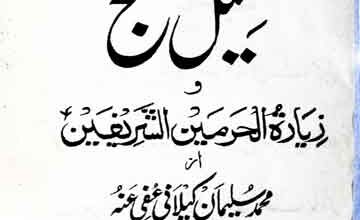 حج
و
زیارة الحرمین الشریفین
از
محمد سلیمان کیلانی عفی عنہ